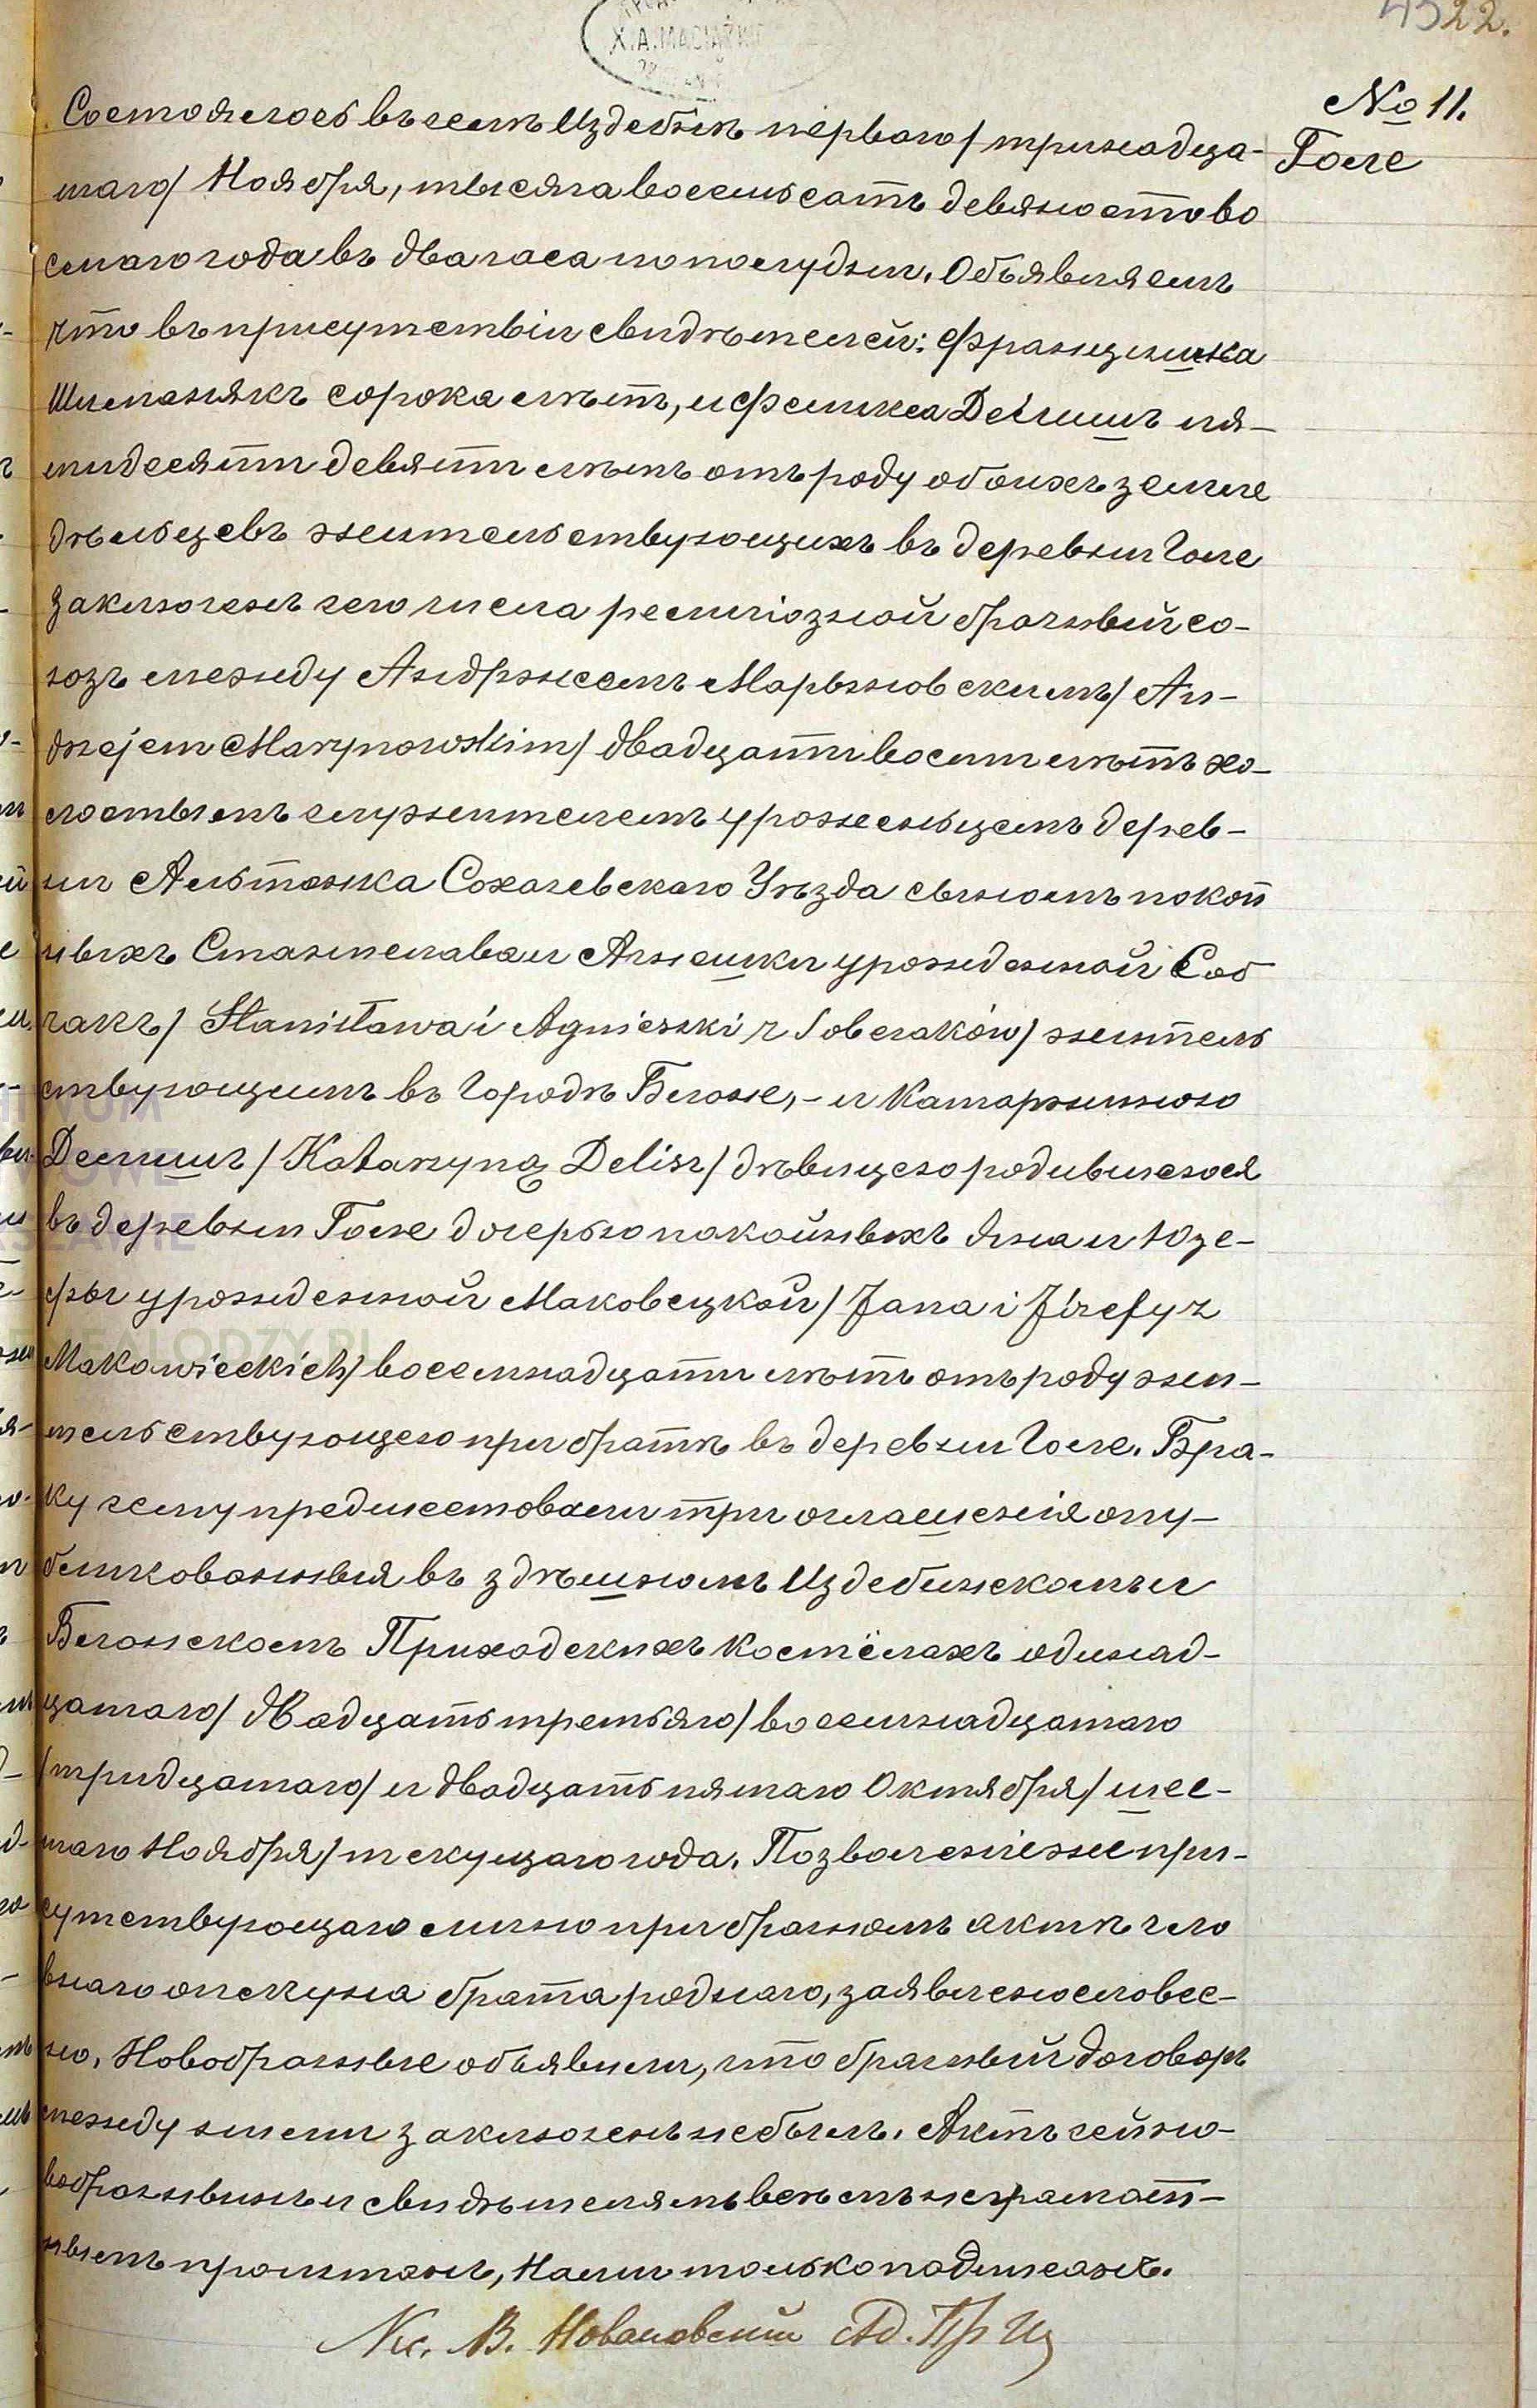 4522.
Х.А.МАСІАЗК
№ 11.
Голе
Состоялось въ селѣ Издебнѣ перваго/тринадца-
таго/ Ноября, тысяча восемьсотъ девяносто во
смаго года въ два часа по полудни. Объявляемъ
что въ присутствіи свидѣтелей: Францишка
Шиманякъ сорока лѣтъ, и Феликса Делишъ пя-
тидесяти девяти лѣтъ отъ роду обоихъ земле
дѣльцевъ жительствующихъ въ деревни Голе
заключенъ сего числа религіозной брачный со-
юзъ между Андржеемъ Марыновскимъ/ An-
drzejem Marynowskim/ двадцати восьми лѣтъ хо-
лостымъ служителемъ уроженцемъ дерев-
ни Альтанка Сохачевскаго Уѣзда сыномъ покой
ныхъ Станислава и Агнешки урожденной Соб
чакъ/ Stanisława i Agnieszki z Sobczaków/ житель
ствующимъ въ Городѣ Блоне,- и Катаржиною
Делишъ /Katarzyną Delisz/ дѣвицею родившеюся
въ деревни Голе дочерью покойныхъ Яна и Юзе-
фы урожденной Маковецкой/ Jana i Józefy z
Makowieckich/ восемнадцати лѣтъ отъ роду жи-
тельствующею при братѣ въ деревни Голе. Бра-
ку сему предшествовали три оглашенія опу-
бликованныя въ здѣшномъ Издебинскомъ и
Блонскомъ Приходскихъ Костёлахъ одинад-
цатаго/ двадцать третьяго/ восемнадцатаго
/тридцатаго/ и двадцать пятаго Октября/ шес-
таго Ноября/ текущаго года. Позволеніе же при-
сутствующаго лично при брачномъ актѣ гла
внаго опекуна брата роднаго, заявлено словес-
но. Новобрачные объявили, что брачный договоръ
между ними заключенъ не былъ. Актъ сей но-
вобрачнымъ и свидѣтелямъ всѣмъ неграмот-
нымъ прочитанъ, Нами только подписанъ.
Кс. В. Новаковский Ад. Пр Из